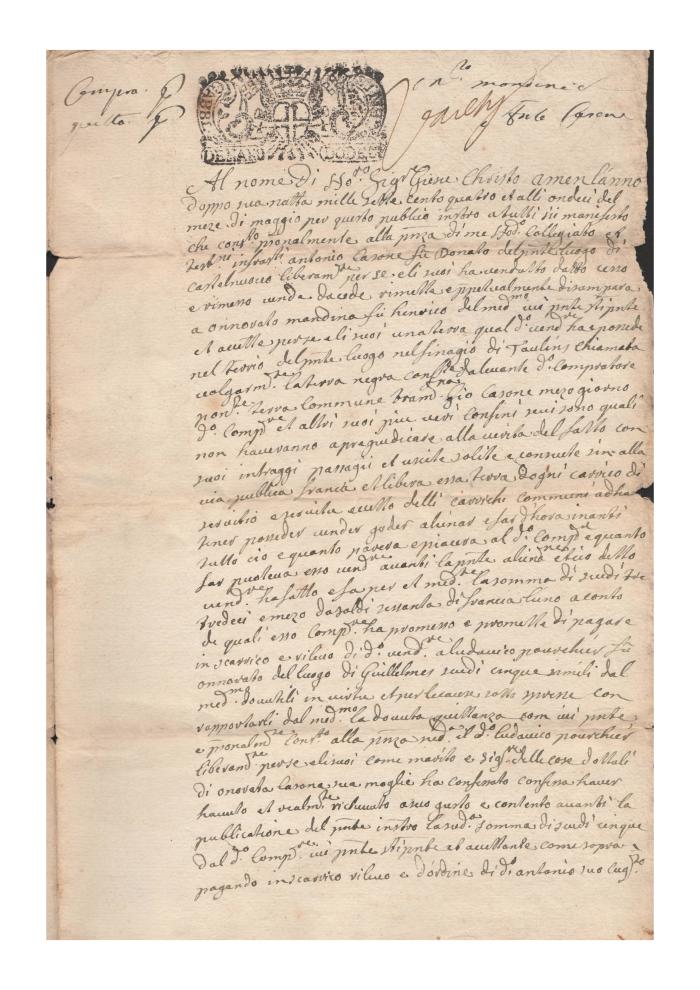 Compra
quitta
Al nome di Sig.r Giesu Christo amen L'anno
doppo sua natta mille sette cento quatro et alli ondeci del
meze di maggio per questo publico instro a tutti sii manifesto
che const.to pronalmente alla pnza di me Not.o Collegiato et
test.ni infrasti antonio Casone fù Donato del pnte luogo di
castelnuovo liberam.te per se e li suoi ha vendutto datto cesso
e rimesso vende da cede rimette e ppetualmente disampara
a onnorato mandina fù henrico del med.mo ivi pnte stipnte
et acette per se e li suoi una terra qual d.o vend.re ha e possede
nel terr.io del pnte luogo nel finagio di Taulins chiamata
volgarm.te la terra negra conf.ta da levante d.o Compratore
pon.te terra Commune tram.na Gio Casone mezo giorno
d.o Comp.re et altri suoi piu veri confini se vi sono quali
non haveranno a pregiudicare alla verita del fatto con
suoi intraggi passagii et uscite solite e consuete sin alla
via publica franca et libera essa terra d'ogni carrico di
servitio e servitu ecetto delli carrichi communi ad ha
tener posseder vender goder alienar e far d'hora inanti
tutto cio e quanto parera e piacera al d.o Comp.re e quanto
far puoteva esso vend.re avanti la pnte alien.ne e cio detto
vend.re ha fatto e fa per et med.te la somma di scudi tre
tredeci e mezo da soldi sessanta di francia l'uno a conto
de quali esso Comp.re ha promesso e promette di pagare
in scarrico e rilievo di d.o vend.re a ludovico pourchier fù
onnorato del luogo di Guillelmes scudi cinque simili dal
med.mo dovutili in virtu et per le cause sotto spresse con
rapportarli dal med.mo la dovuta quittanza com ivi pnte
e pronalm.te Const.to alla pnza med.a il d.o ludovico pourchier
liberam.te per se e li suoi come marito e sig.r delle cose dottali
di onorata Casona sua moglie ha confessato confessa haver
havuto et realm.te ricevuto a suo gusto e contento avanti la
publicatione del pnte instro la sud.a somma di scudi cinque
dal d.o Comp.re ivi pnte stipnte et acettante come sopra
pagando in scarrico rilievo e d'ordine di d.o antonio suo cug.no